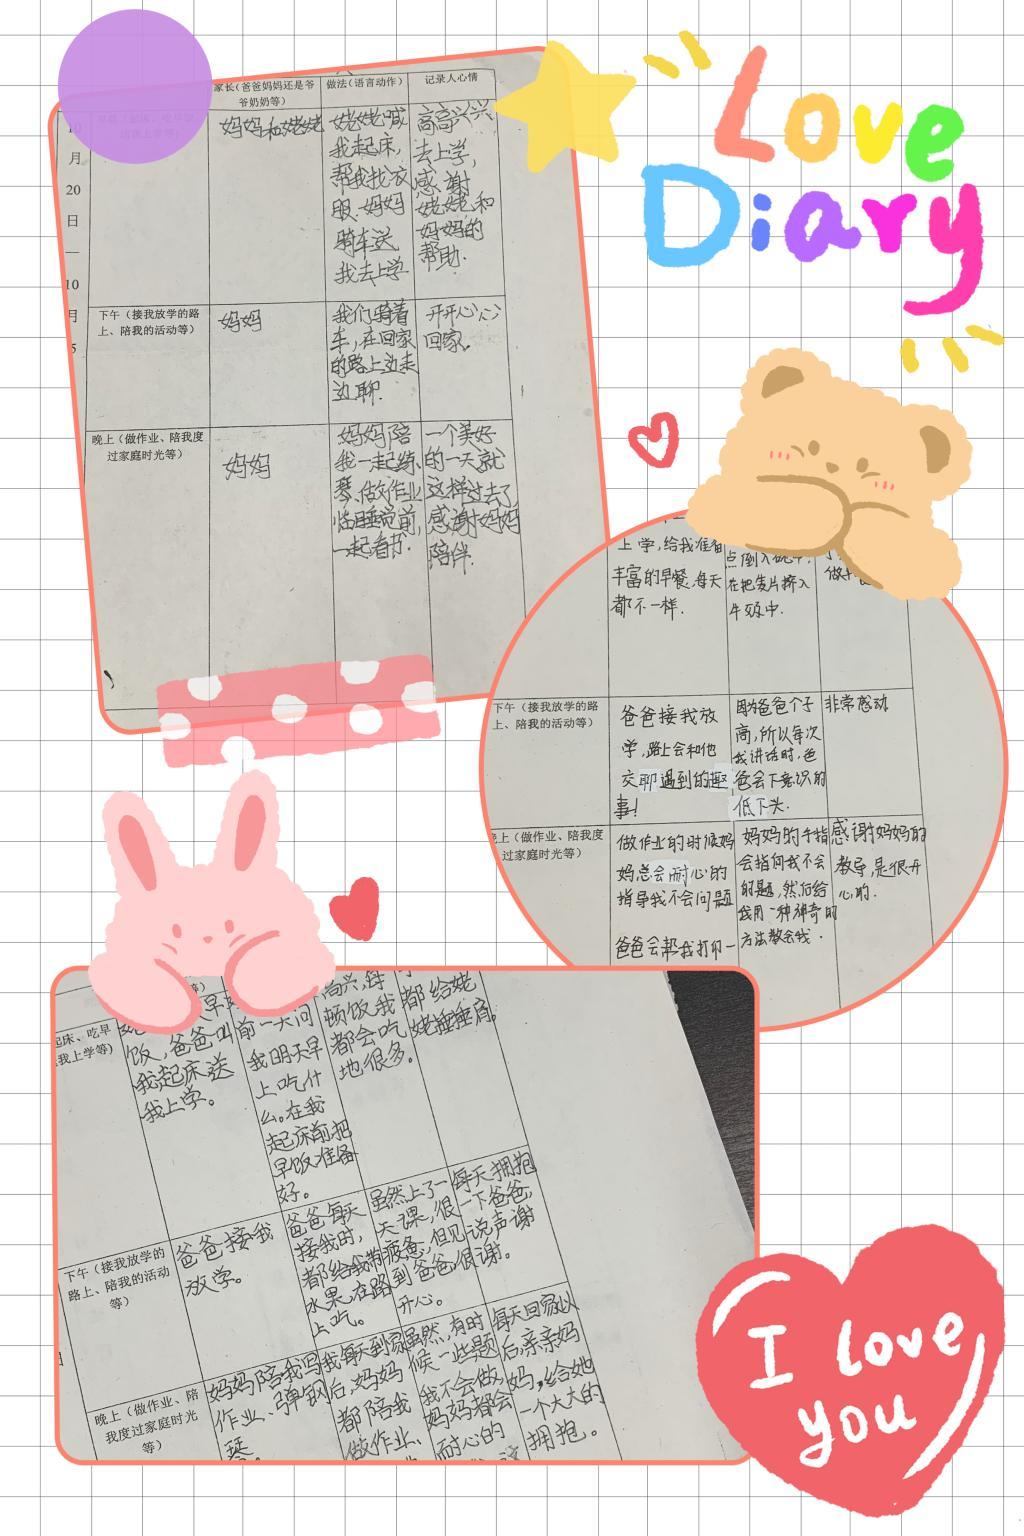 Love
Diary
家长(爸爸妈妈还是爷
爷奶奶等)
做法(语言动作)
记录人心情
10
月
20
日
—
10
月
5
妈妈和姥姥
姥姥喊
我起床,
帮我找衣
服.妈妈
骑车送
我去上学
高高兴兴
去上学,
感谢
姥姥和
妈妈的
帮助.
下午(接我放学的路
上、陪我的活动等)
妈妈
我们骑着
车,在回家
的路上边走
边聊.
开开心心
回家.
晚上(做作业、陪我度
过家庭时光等)
妈妈
妈妈陪
我一起练
琴、做作业
临睡觉前,
一起看书.
一个美好
的一天就
这样过去了
感谢妈妈
陪伴.
上学,给我准备
丰富的早餐.每天
都不一样.
在把麦片挤入
牛奶中.
下午(接我放学的路
上、陪我的活动等)
爸爸接我放
学,路上会和他
交聊遇到的趣
事!
因为爸爸个子
高,所以每次
我讲话时,爸
爸会下意识的
低下头.
非常感动
晚上(做作业、陪我度
过家庭时光等)
做作业的时候妈
妈总会耐心的
指导我不会问题
爸爸会帮我打印一
妈妈的手指
会指向我不会
的题,然后给
我用一种神奇的
方法教会我.
感谢妈妈的
教导,是很开
心的.
起床、吃早
我上学等)
饭,爸爸叫
我起床送
我上学。
前一天问
我明天早
上吃什
么。在我
起床前把
早饭准备
好。
顿饭我
都会吃
地很多。
都给姥
姥捶捶肩。
下午(接我放学的
路上、陪我的活动
等)
爸爸接我
放学。
爸爸每天
接我时,
都给我带
水果,在路
上吃。
虽然上了一
天课,很
疲惫,但见
到爸爸,很
开心。
每天拥抱
一下爸爸,
说声谢
谢。
晚上(做作业、陪
我度过家庭时光
等)
妈妈陪我写
作业、弹钢
琴。
我每天到家
后,妈妈
都陪我
做作业、
虽然,有时
候一些题
我不会做,
妈妈都会
耐心的
每天回家以
后亲亲妈
妈,给她
一个大大的
拥抱。
I love
you